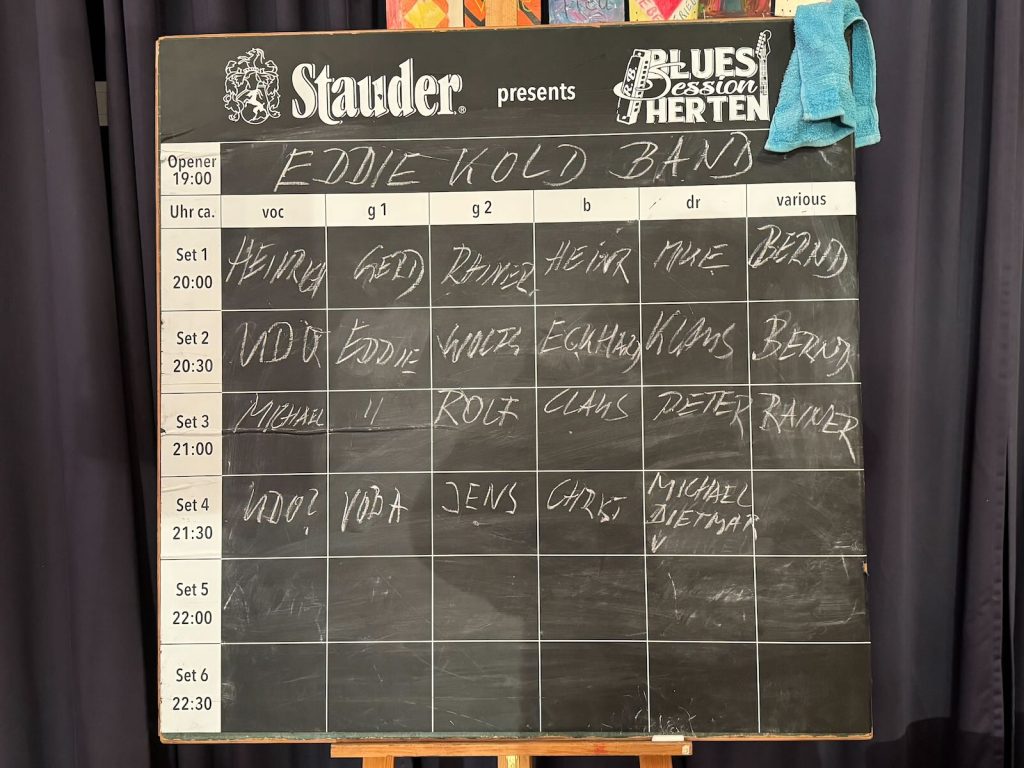 Stauder® presents BLUES Session HERTEN
Opener 19:00 EDDIE KOLD BAND
Uhr ca. voc g 1 g 2 b dr various
Set 1 20:00 HEINRICH GERD RAINER HEINR MIKE BERND
Set 2 20:30 UDO EDDIE ECKHARD KLAUS BERND
Set 3 21:00 MICHAEL " ROLF CLAUS PETER RAINER
Set 4 21:30 UDO? JENS MICHAEL DIETMAR
Set 5 22:00
Set 6 22:30